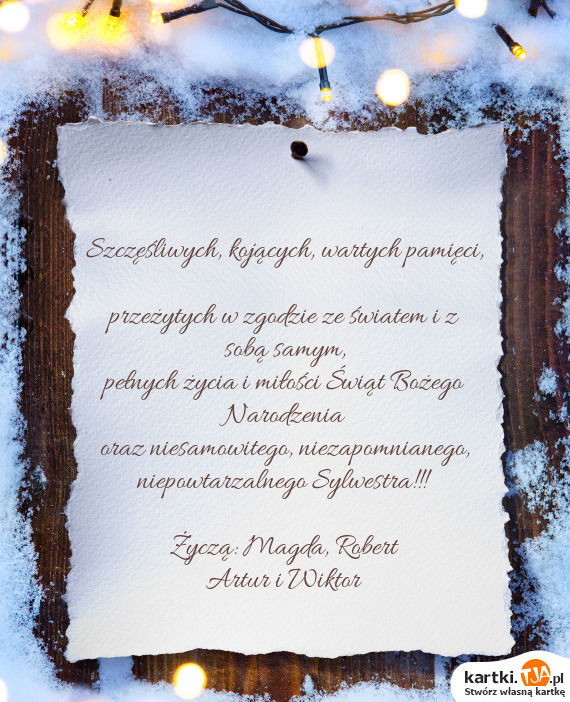 Szczęśliwych, kojących, wartych pamięci,
przeżytych w zgodzie ze światem i z
sobą samym,
pełnych życia i miłości Świąt Bożego
Narodzenia
oraz niesamowitego, niezapomnianego,
niepowtarzalnego Sylwestra!!!
Życzą: Magda, Robert
Artur i Wiktor
kartki.TJA.pl
Stwórz własną kartkę